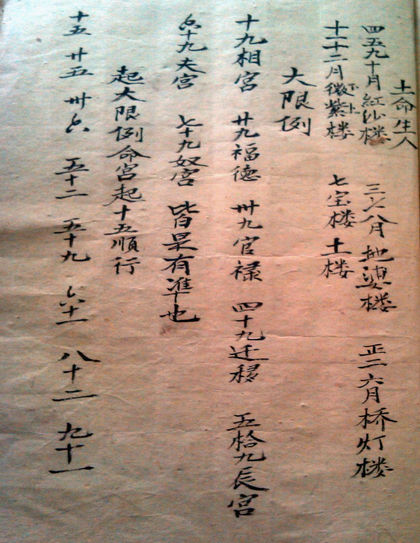 土命生人
四五九十月紅沙楼 三七八月地婆楼 正二六月桥灯楼
十一十二月微紫楼 七宝楼 土楼
大限例
十九相宫 廿九福德 卅九官禄 四十九迁移 五拾九長宫
六十九夫宫 七十九奴宫 皆是有準也
起大限例命宫起十五順行
十五 廿五 卅六 五十二 五十九 六十一 八十二 九十一